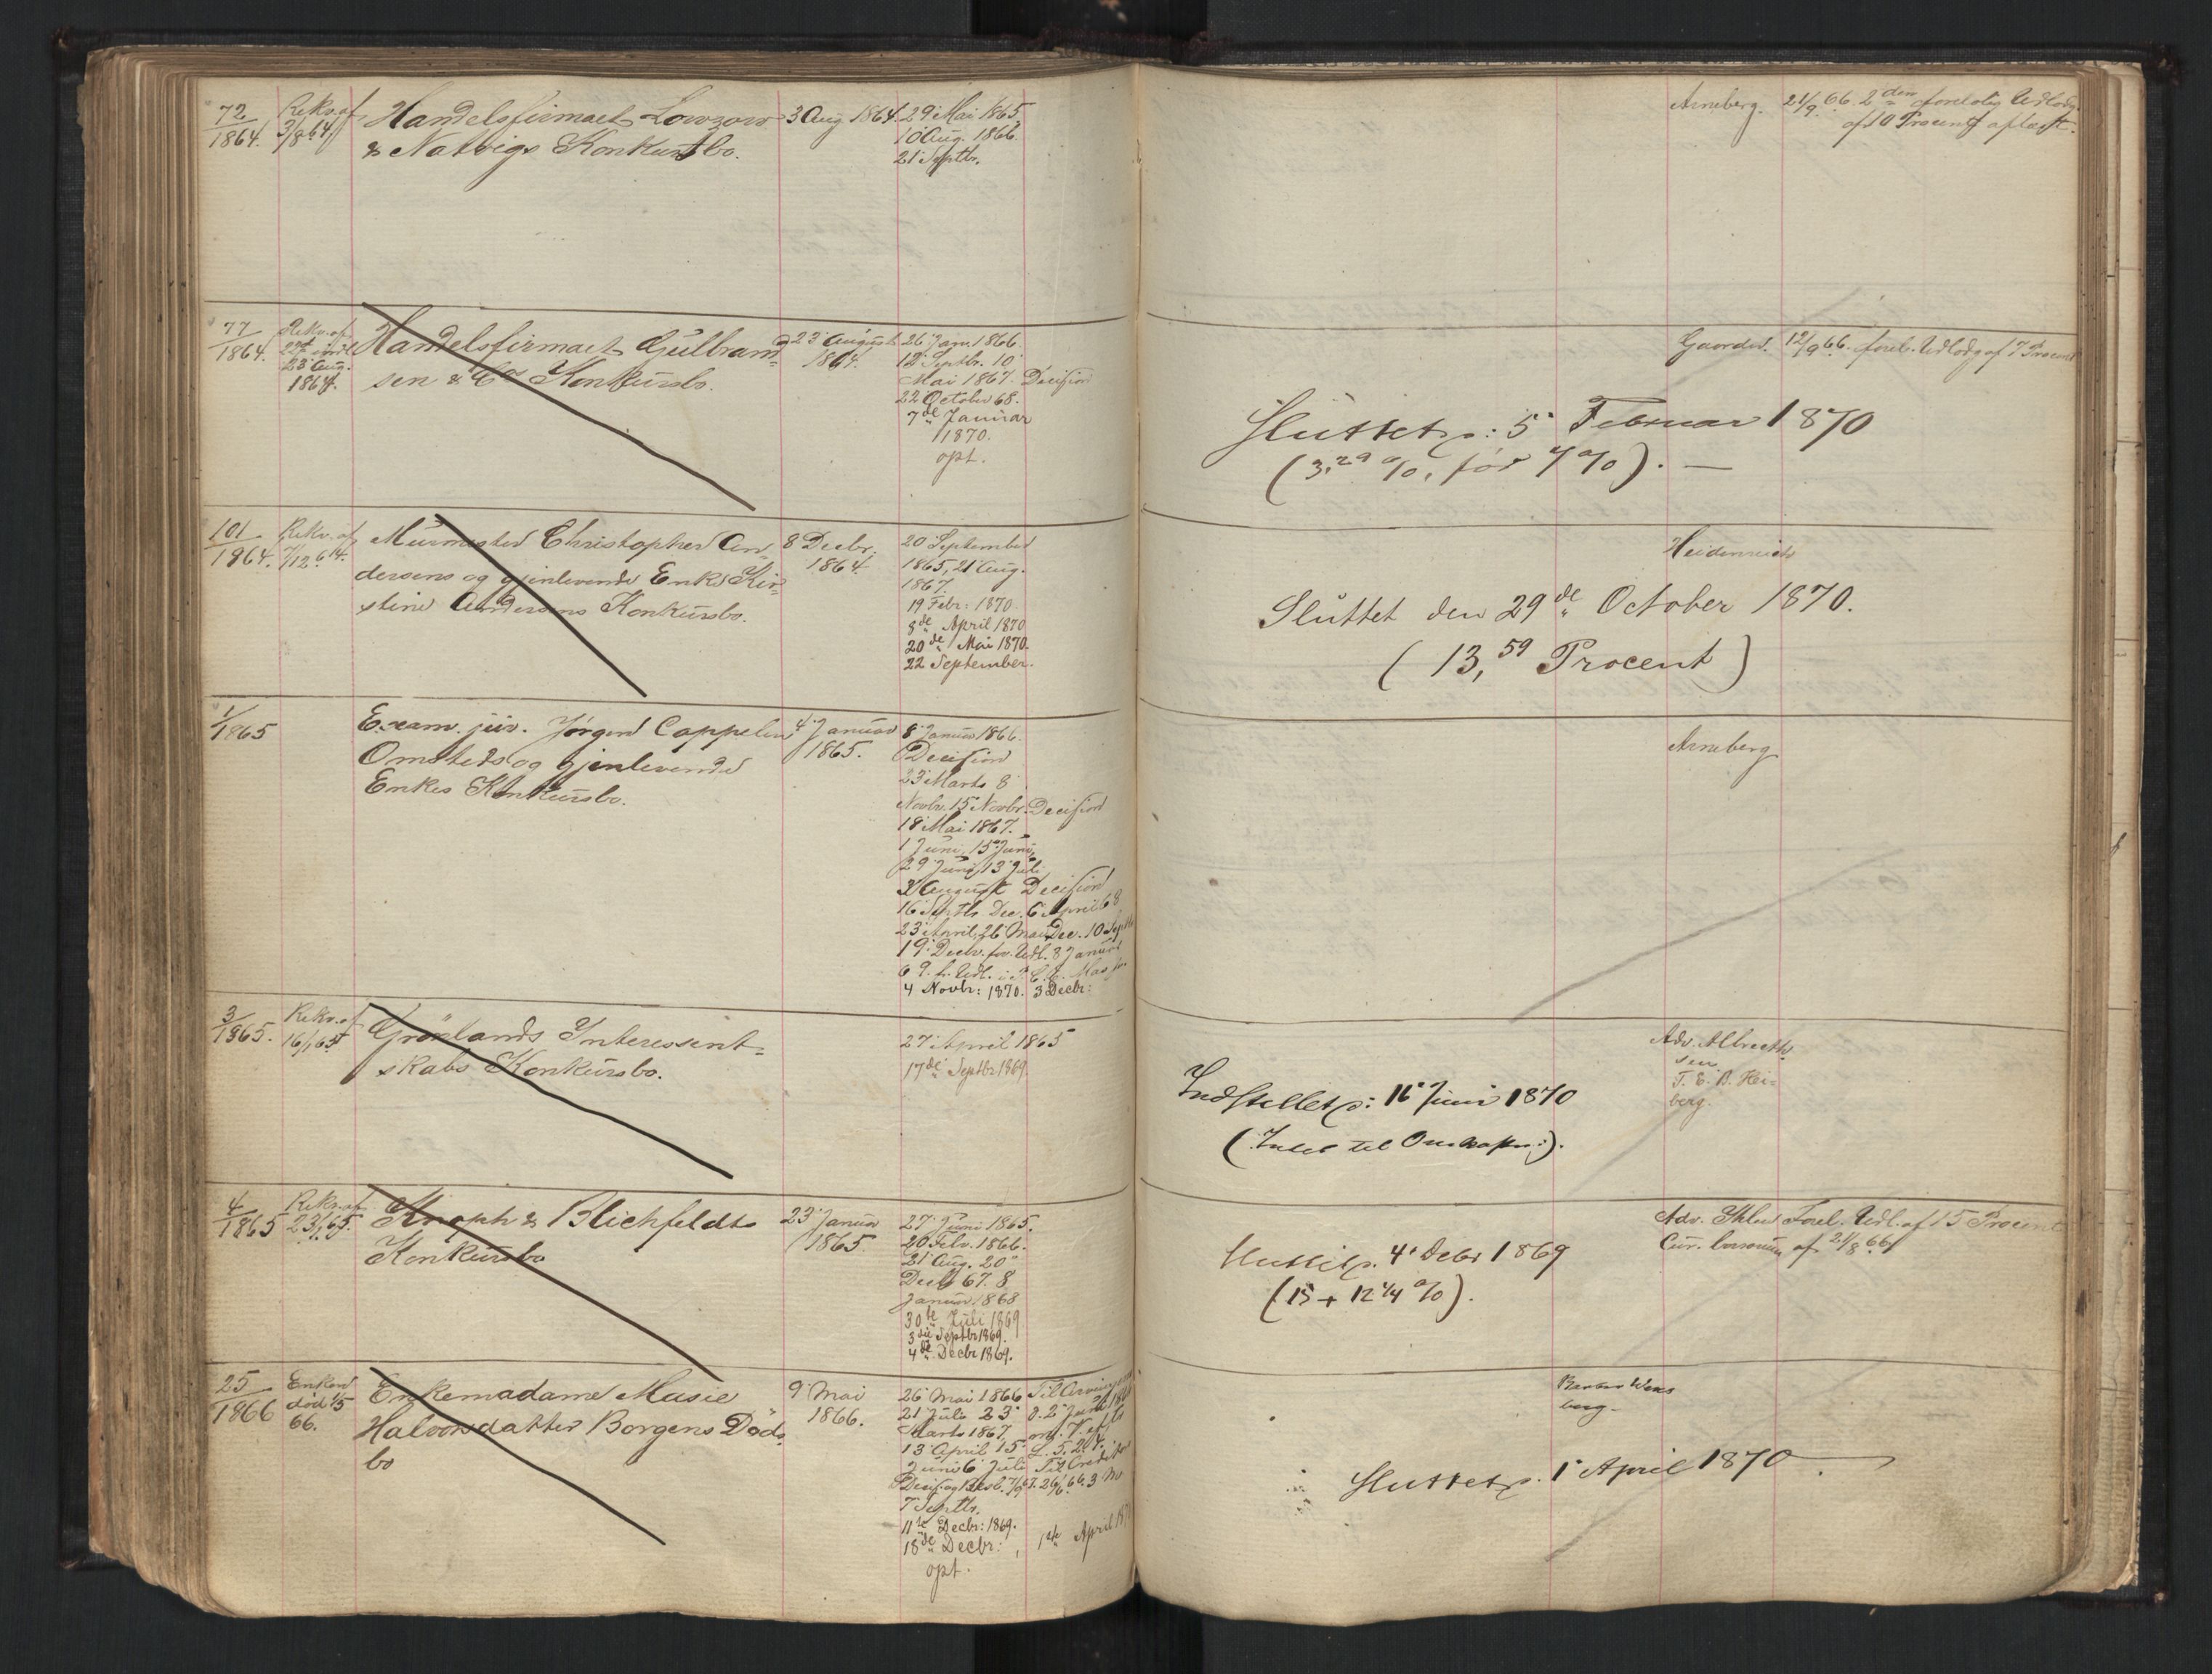 72
1864.
Rekv. af
3/8 64.
Handelsfirmaet Lowzow
& Natvigs Konkursbo.
3 Aug 1864.
29 Mai 1865,
10 Aug. 1866.
21 Septbr.
Arneberg.
21/9 66. 2den forelobig Udlodg.
af 10 Procent
77
1864.
Rekv. af
23 Aug.
1864.
Handelsfirmaet Gulbrand
sen & Co Konkursbo.
23 August
1864.
26 Janv. 1866.
12 Septbr. 10
Mai 1867. Decision
22 October 68.
7de Januar
1870.
opt.
Gaarder.
12/9 66. forel. Udlodg af 7 Procent
Sluttet d: 5 Februar 1870
(3,29 %, før 7 %). —
101
1864.
Rekv. af
7/12 64.
Murmester Christopher An-
dersens og gjenlevende Enke Kir-
stine Andersens Konkursbo.
8 Decbr.
1864.
20 September
1865, 21 Aug.
1867.
19 Febr: 1870.
8de April 1870
20de Mai 1870.
22 September.
Heidenreich
Sluttet den 29de October 1870.
(13,59 Procent)
1/
1865
Exam. jur. Jørgen Cappelen
Omsteds og gjenlevende
Enkes Konkursbo.
4 Januar
1865.
8 Januar 1866.
Decision
23 Marts 8
Novbr. 15 Novbr. Decision
18 Mai 1867.
1 Juni, 15 Juni,
29 Juni, 13 Juli
August Decision
16 Septbr. Dec. 6 April 68
23 April, 26 Mai Dec. 10 Septbr
19 Decbr. for. Udl. 8 Januar
69. f. Udl.
4 Novbr: 1870. 3 Decbr:
Arneberg
3
1865.
Rekv. af
16/1 65
Grønlands Interessent-
skabs Konkursbo.
27 April 1865
17de Septbr 1869
Adv. Albrecht
sen
T. E. B. Hei-
berg.
Indstillet d: 16 Juni 1870
( til ).
4
1865
Rekv. af
23/1 65.
Knoph & Blichfeldts
Konkursbo
23 Januar
1865
27 Juni 1865.
20 Febr. 1866.
21 Aug. 20
Decbr 67. 8
Januar 1868
30te Juli 1869
3die Septbr 1869.
4de Decbr 1869.
Adv. Forel. Udl. af 15 Procent
Cur. af 21/8 66
Sluttet d. 4 Decbr 1869
(15 + 12 1/4 %).
25
1866
Enken
død 1/5
66.
Enkemadame Masie
Halvorsdatter Borgens Døds
bo
9 Mai
1866.
26 Mai 1866
21 Juli 23
Marts 1867
13 April 15
Juni 6 Juli
7 Septbr.
11te Decbr: 1869.
18de Decbr: , 1ste April 1870
opt.
Til Arvingerne
Til Creditor
berg.
Sluttet d. 1 April 1870.